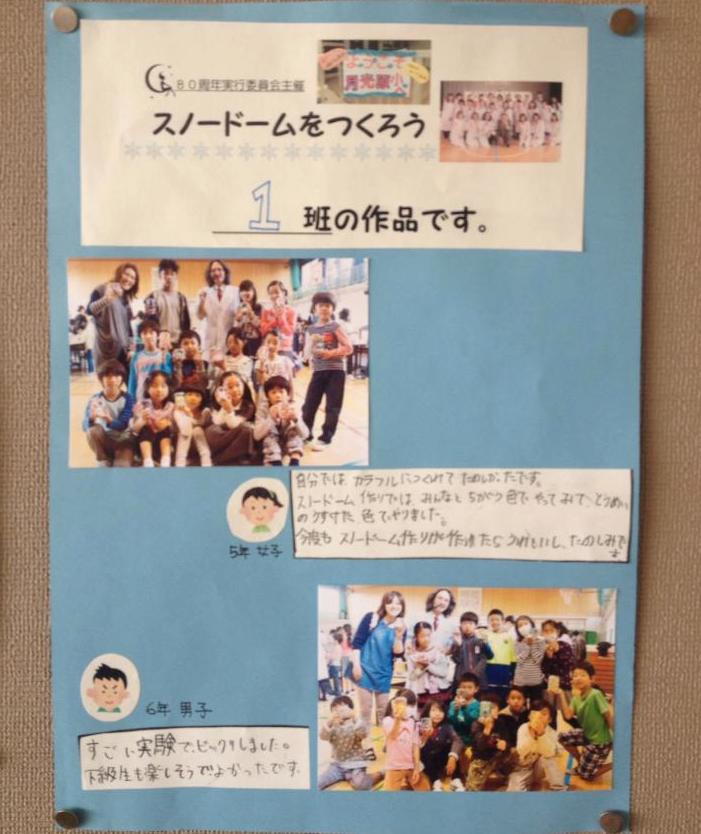 80周年実行委員会主催
ようこそ
月光原小へ
スノードームをつくろう
1 班の作品です。
自分では、カラフルにつくれて たのしかったです。
スノードーム 作りでは、みんなと ちがう 色で やってみて、とうめい
のうすけた 色で、やりました。
今度も スノードーム作りが 作れたら うれしいし、たのしみで
す
5年 女子
6年 男子
すごい実験で、ビックリしました。
下級生も楽しそうでよかったです。